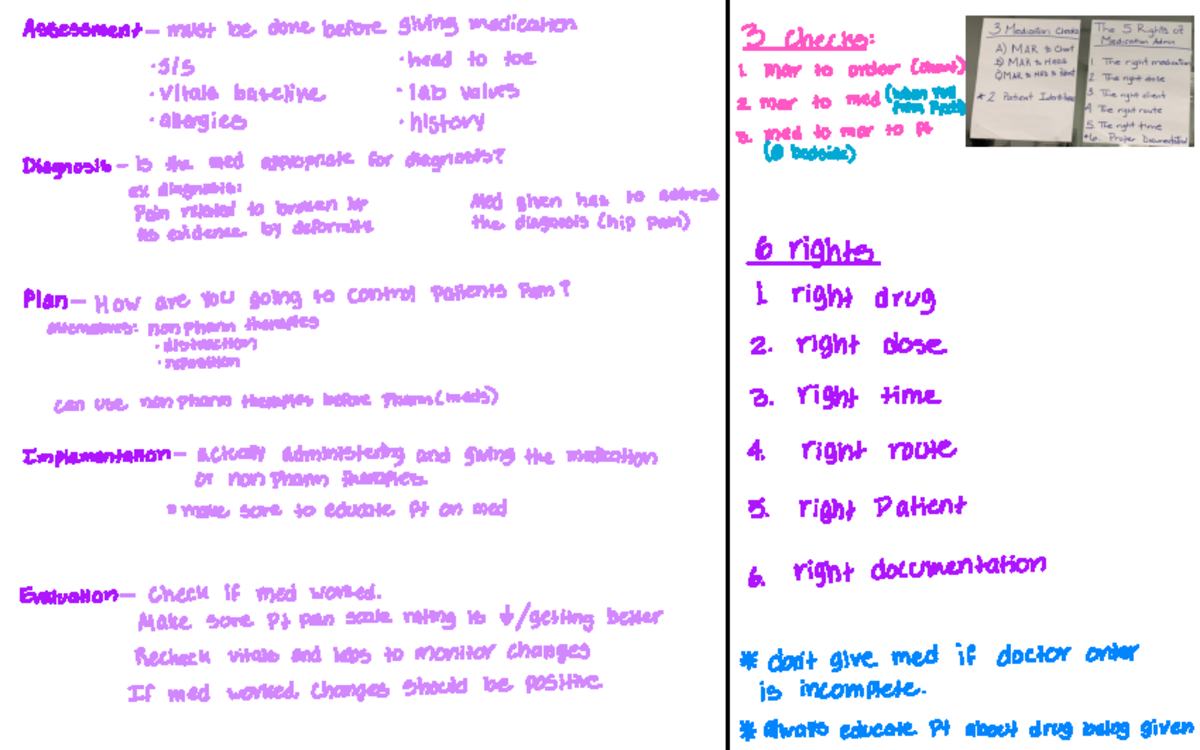 Assessment - must be done before giving medication
· S/S
· Vitals baseline
· allergies
· head to toe
· lab values
· history
Diagnosis - Is the med appropriate for diagnosis?
ex diagnosis:
Pain related to broken hip
as evidence by deformity
Med given has to address
the diagnosis (hip pain)
Plan - How are you going to control patients pain?
Alternatives: non pharm therapies
· distraction
· reposition
can use non pharm therapies before pharm (meds)
Implementation - actually administering and giving the medication
or non pharm therapies.
* make sure to educate pt on med
Evaluation - Check if med worked.
Make sure pt pain scale rating is ↓/getting better
Recheck vitals and labs to monitor changes
If med worked, changes should be positive
3 checks:
1. mar to order (chart)
2. mar to med (when pull from
3. med to mar to pt
(@ bedside)
3 Medication Checks
A) MAR to Chart
B) MAR to Meds
C) MAR to Meds to Patient
* 2 Patient Identifiers
The 5 Rights of
Medication Admin
1 The right medication
2 The right dose
3 The right client
4 The right route
5. The right time
*6. Proper Documentation
6 rights
1. right drug
2. right dose
3. right time
4. right route
5. right Patient
6. right documentation
* don't give med if doctor order
is incomplete.
* Always educate pt about drug being given